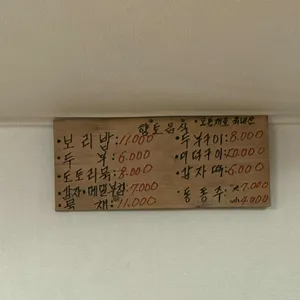 향토음식 •모든재료 국내산
•보리밥:11.000
•두 부:6.000
•도토리묵:8.000
•감자•메밀부침:7.000
•묵 채:11.000
•두부구이:8.000
•더덕구이:10.000
•감자떡:6.000
동동주: 7.000
4.000